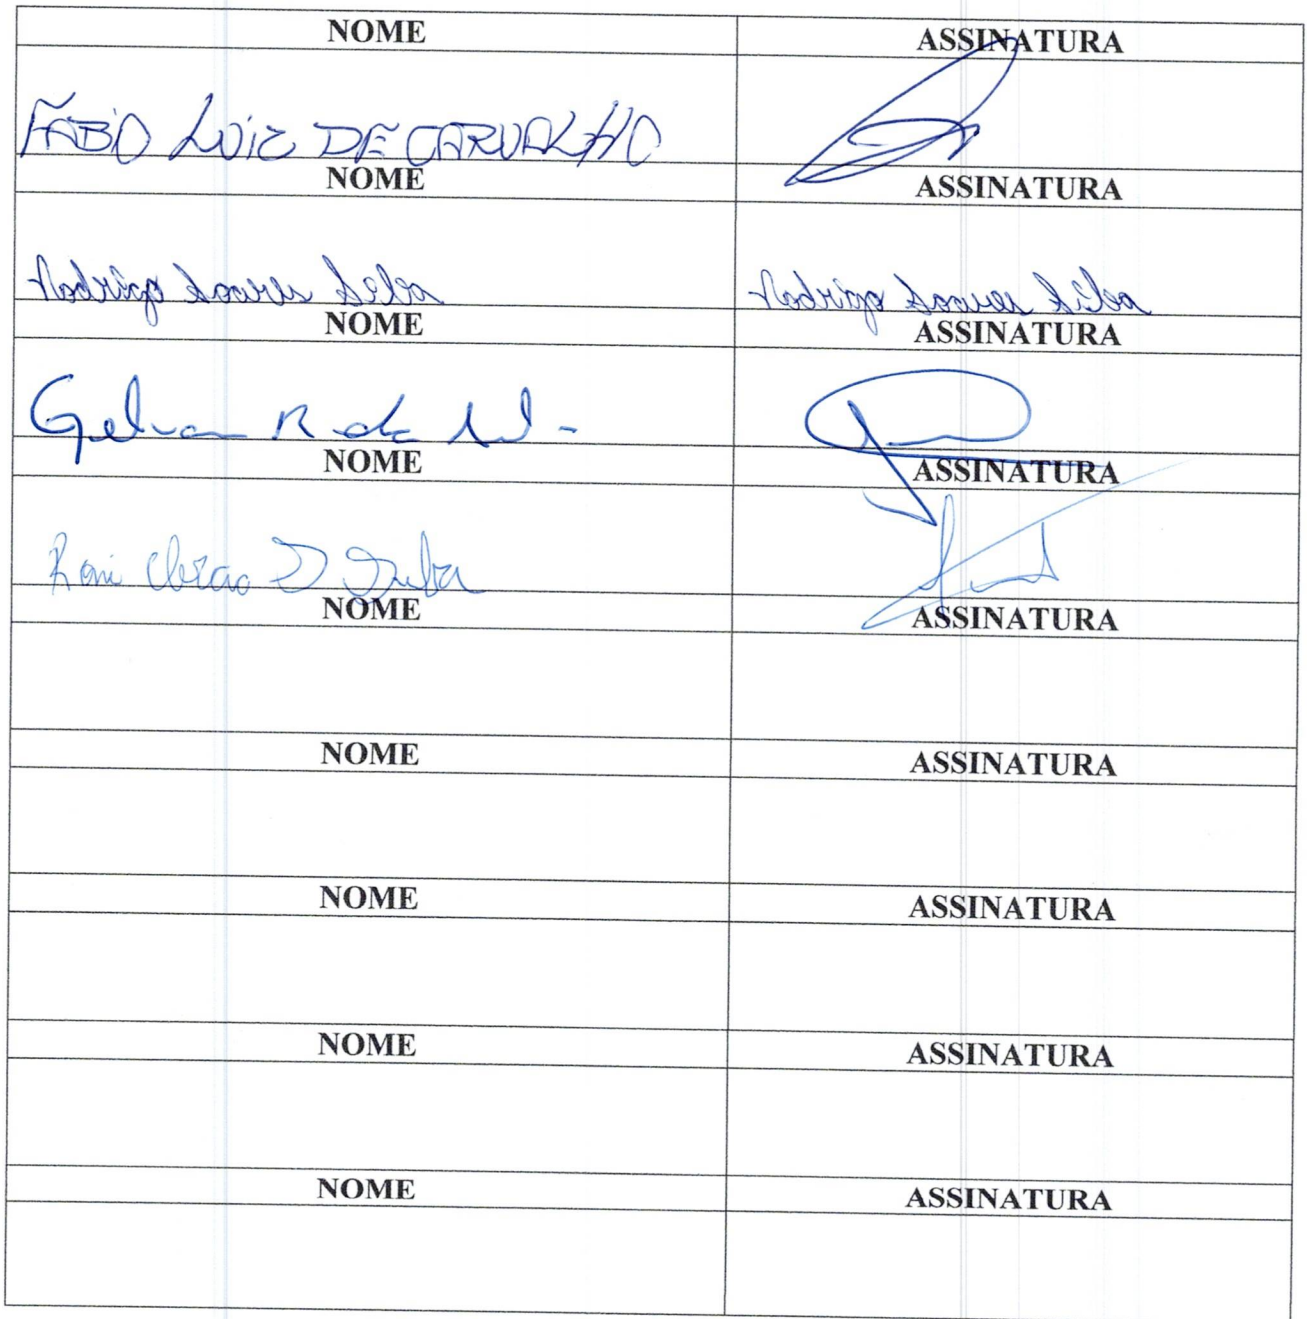 NOME ASSINATURA
FABIO LUIZ DE CARVALHO
NOME ASSINATURA
Rodrigo Soares Silva Rodrigo Soares Silva
NOME ASSINATURA
R da
NOME ASSINATURA
Roni
NOME ASSINATURA
NOME ASSINATURA
NOME ASSINATURA
NOME ASSINATURA
NOME ASSINATURA